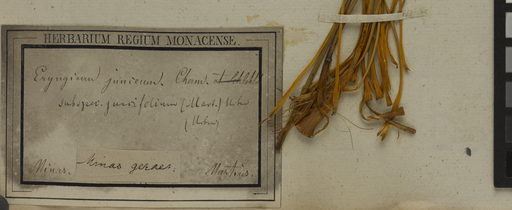 HERBARIUM REGIUM MONACENSE.
Eryngium junceum. Cham. et Schldl
subspec. juncifolium (Mart.) Urb
(Urban)
Minas. Minas geraes. Martius.